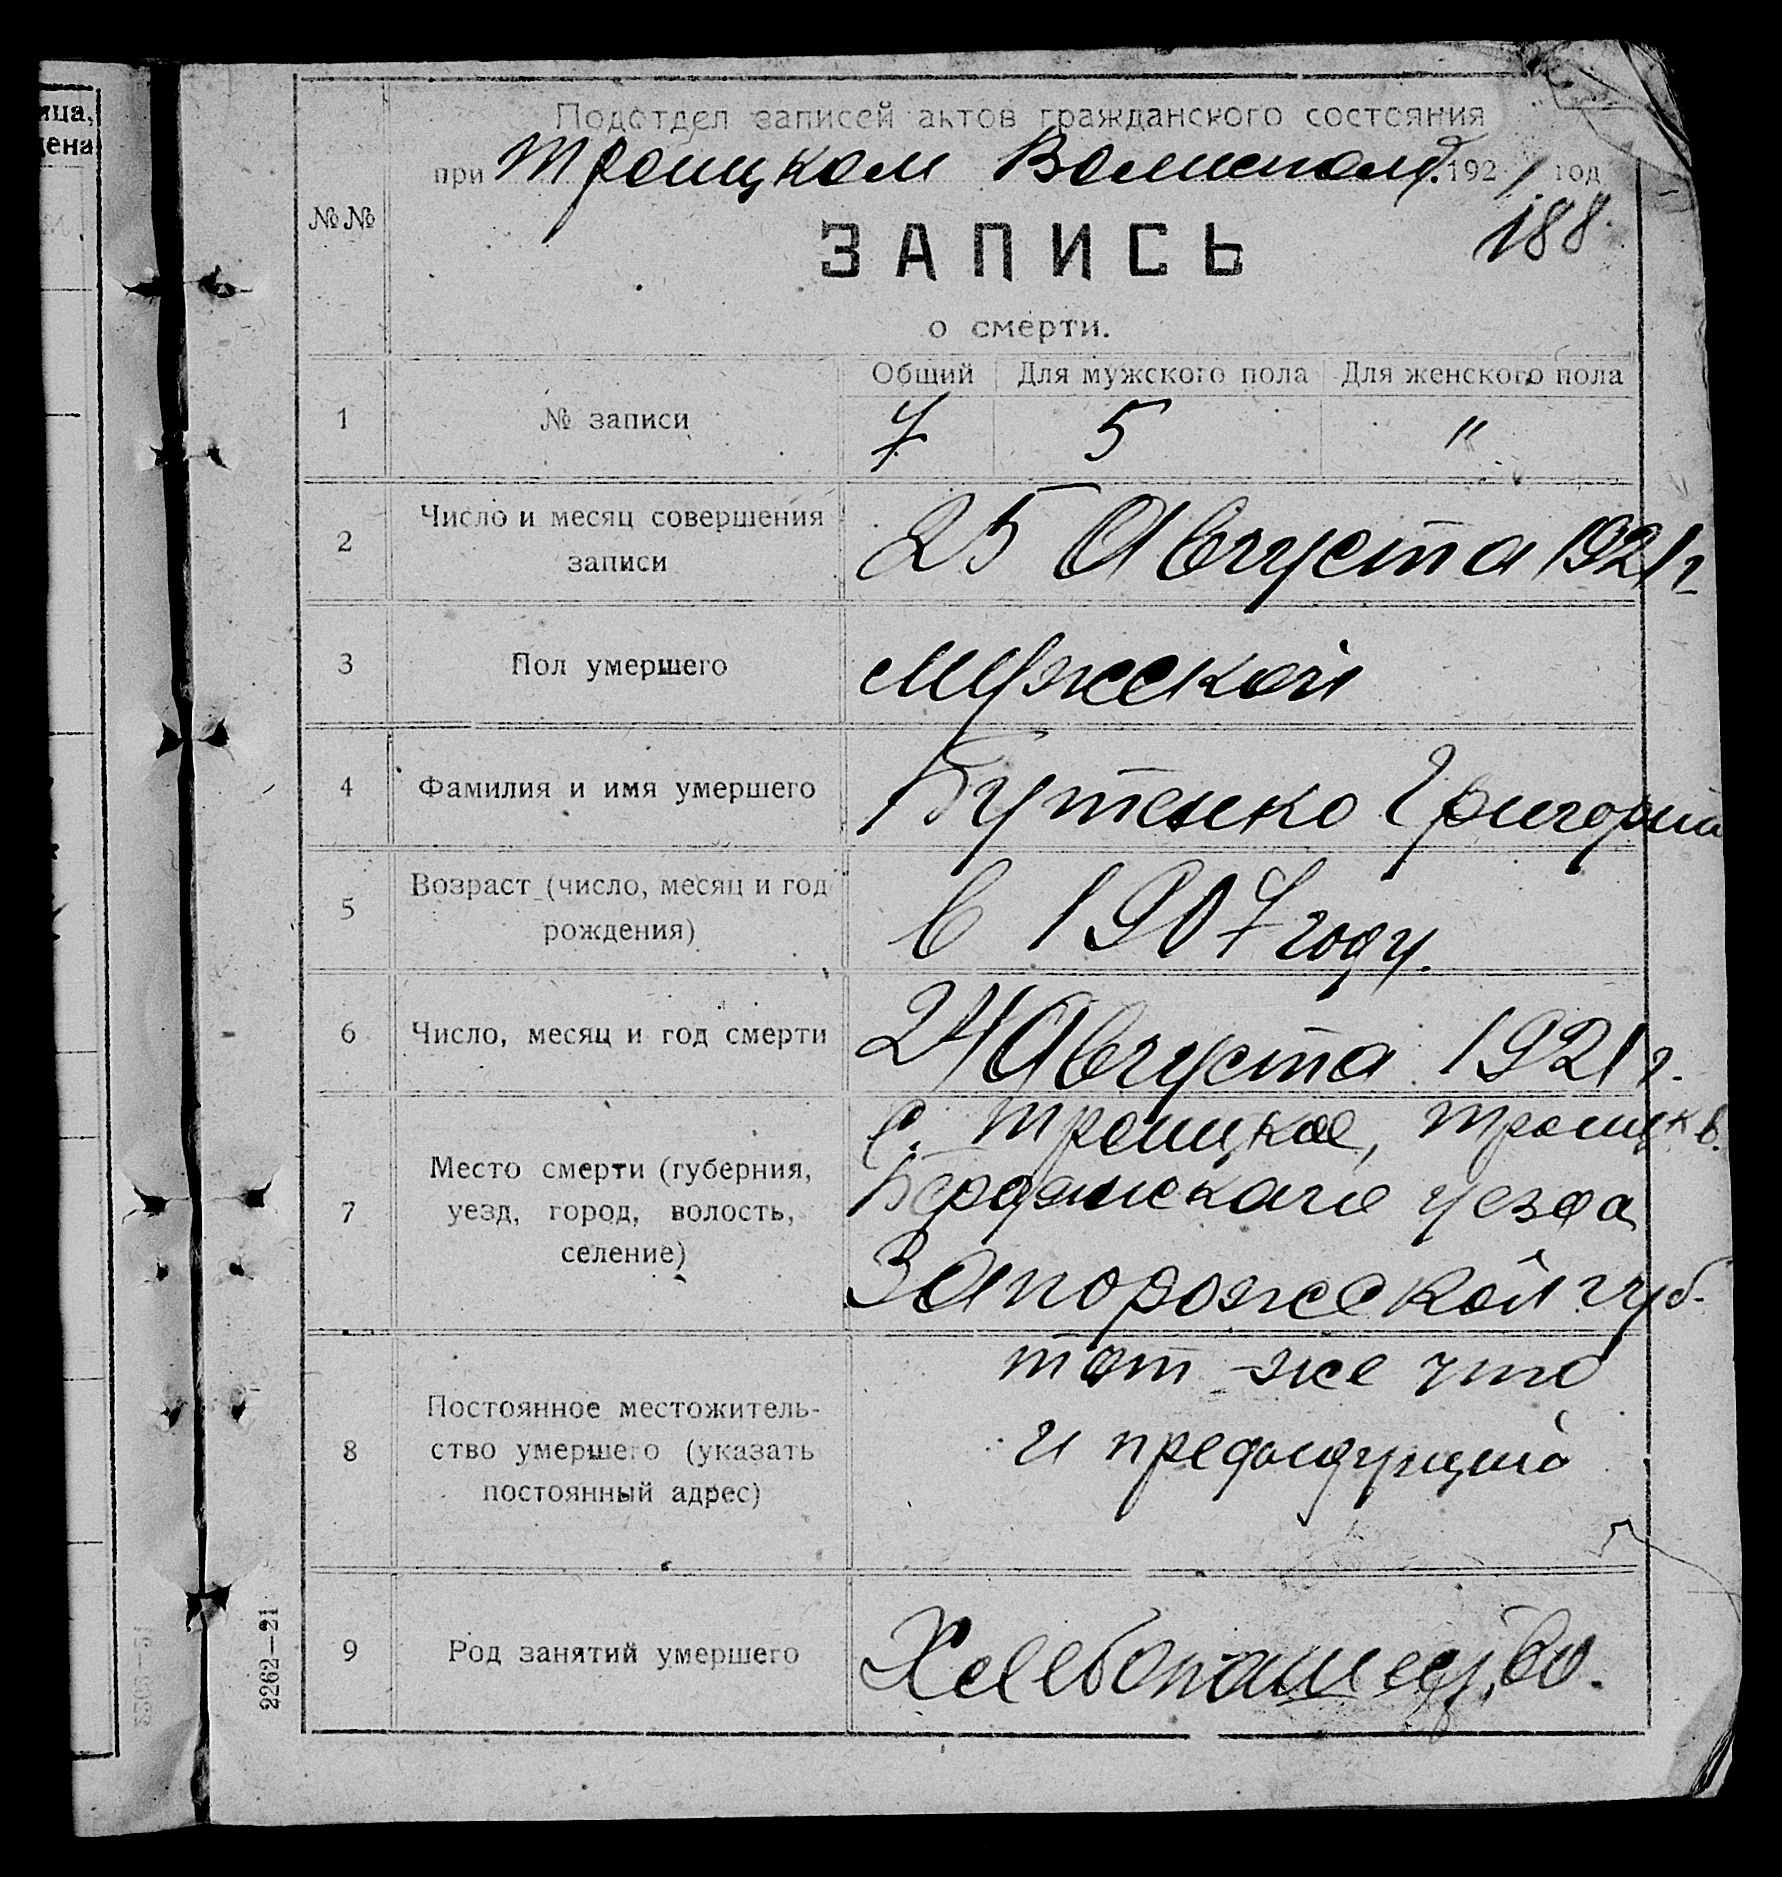 ица,
ена
Подотдел записей актов гражданского состояния
при Троицком Волисполк. 1921 год
188
№№
ЗАПИСЬ
о смерти.
Общий Для мужского пола Для женского пола
1 № записи 7 5 "
2 Число и месяц совершения
записи 25 Августа 1921 г
3 Пол умершего мужской
4 Фамилия и имя умершего Бутенко Григорий
5 Возраст (число, месяц и год
рождения) в 1907 году.
6 Число, месяц и год смерти 24 Августа 1921 г.
7 Место смерти (губерния,
уезд, город, волость,
селение)
с. Троицкое, Троицк в.
Бердянскаго уезда
Запорожской губ.
8 Постоянное местожитель-
ство умершего (указать
постоянный адрес)
тот-же что
и предыдущий
9 Род занятий умершего Хлебопашество.
2262—21